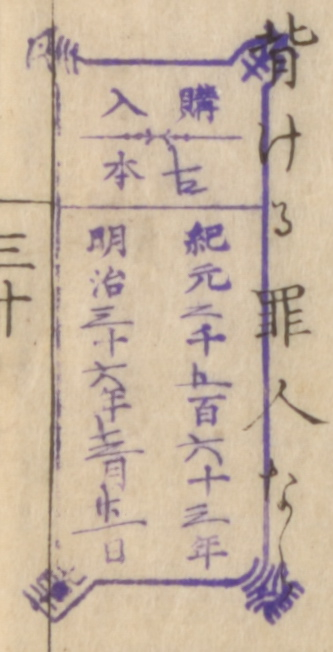 背ける罪人なり
購入
古本
紀元二千五百六十三年
明治三十六年十二月廿一日
三十